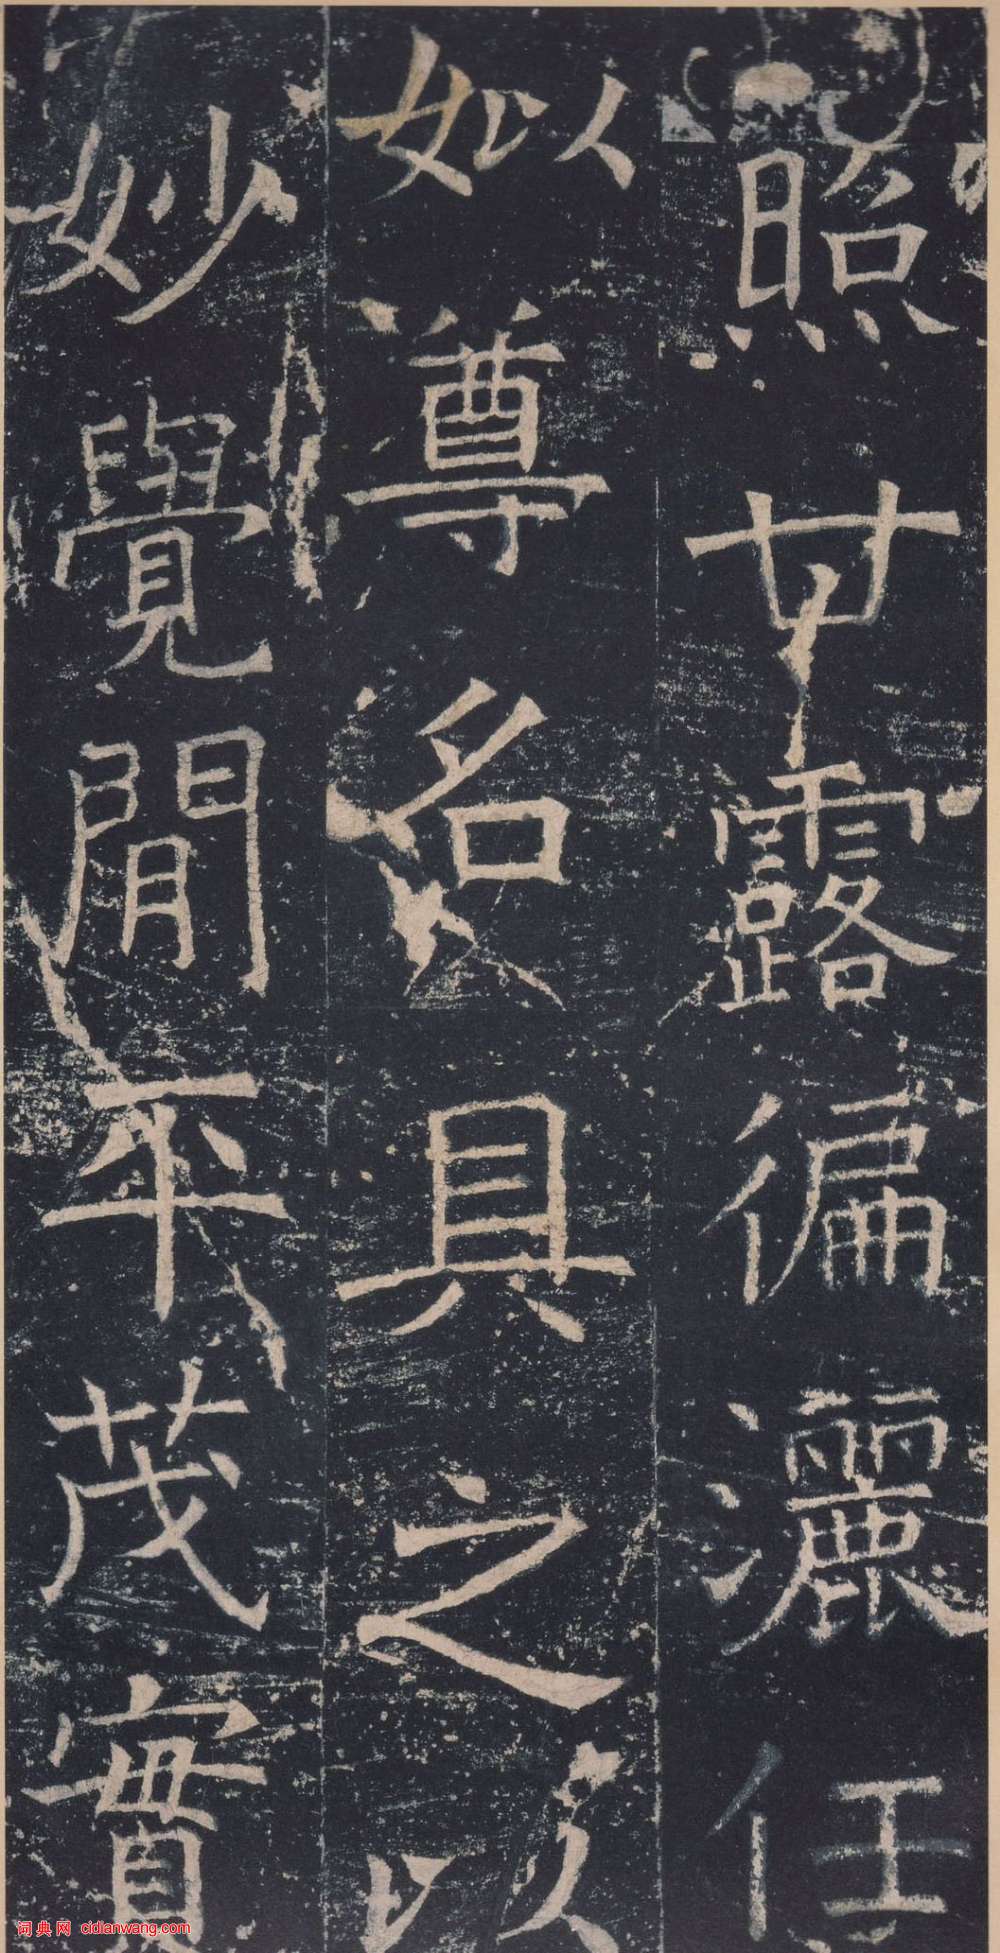 照甘露偏灑任
姒尊名具之以
妙覺閒平茂實
词典网 cidianwang.com